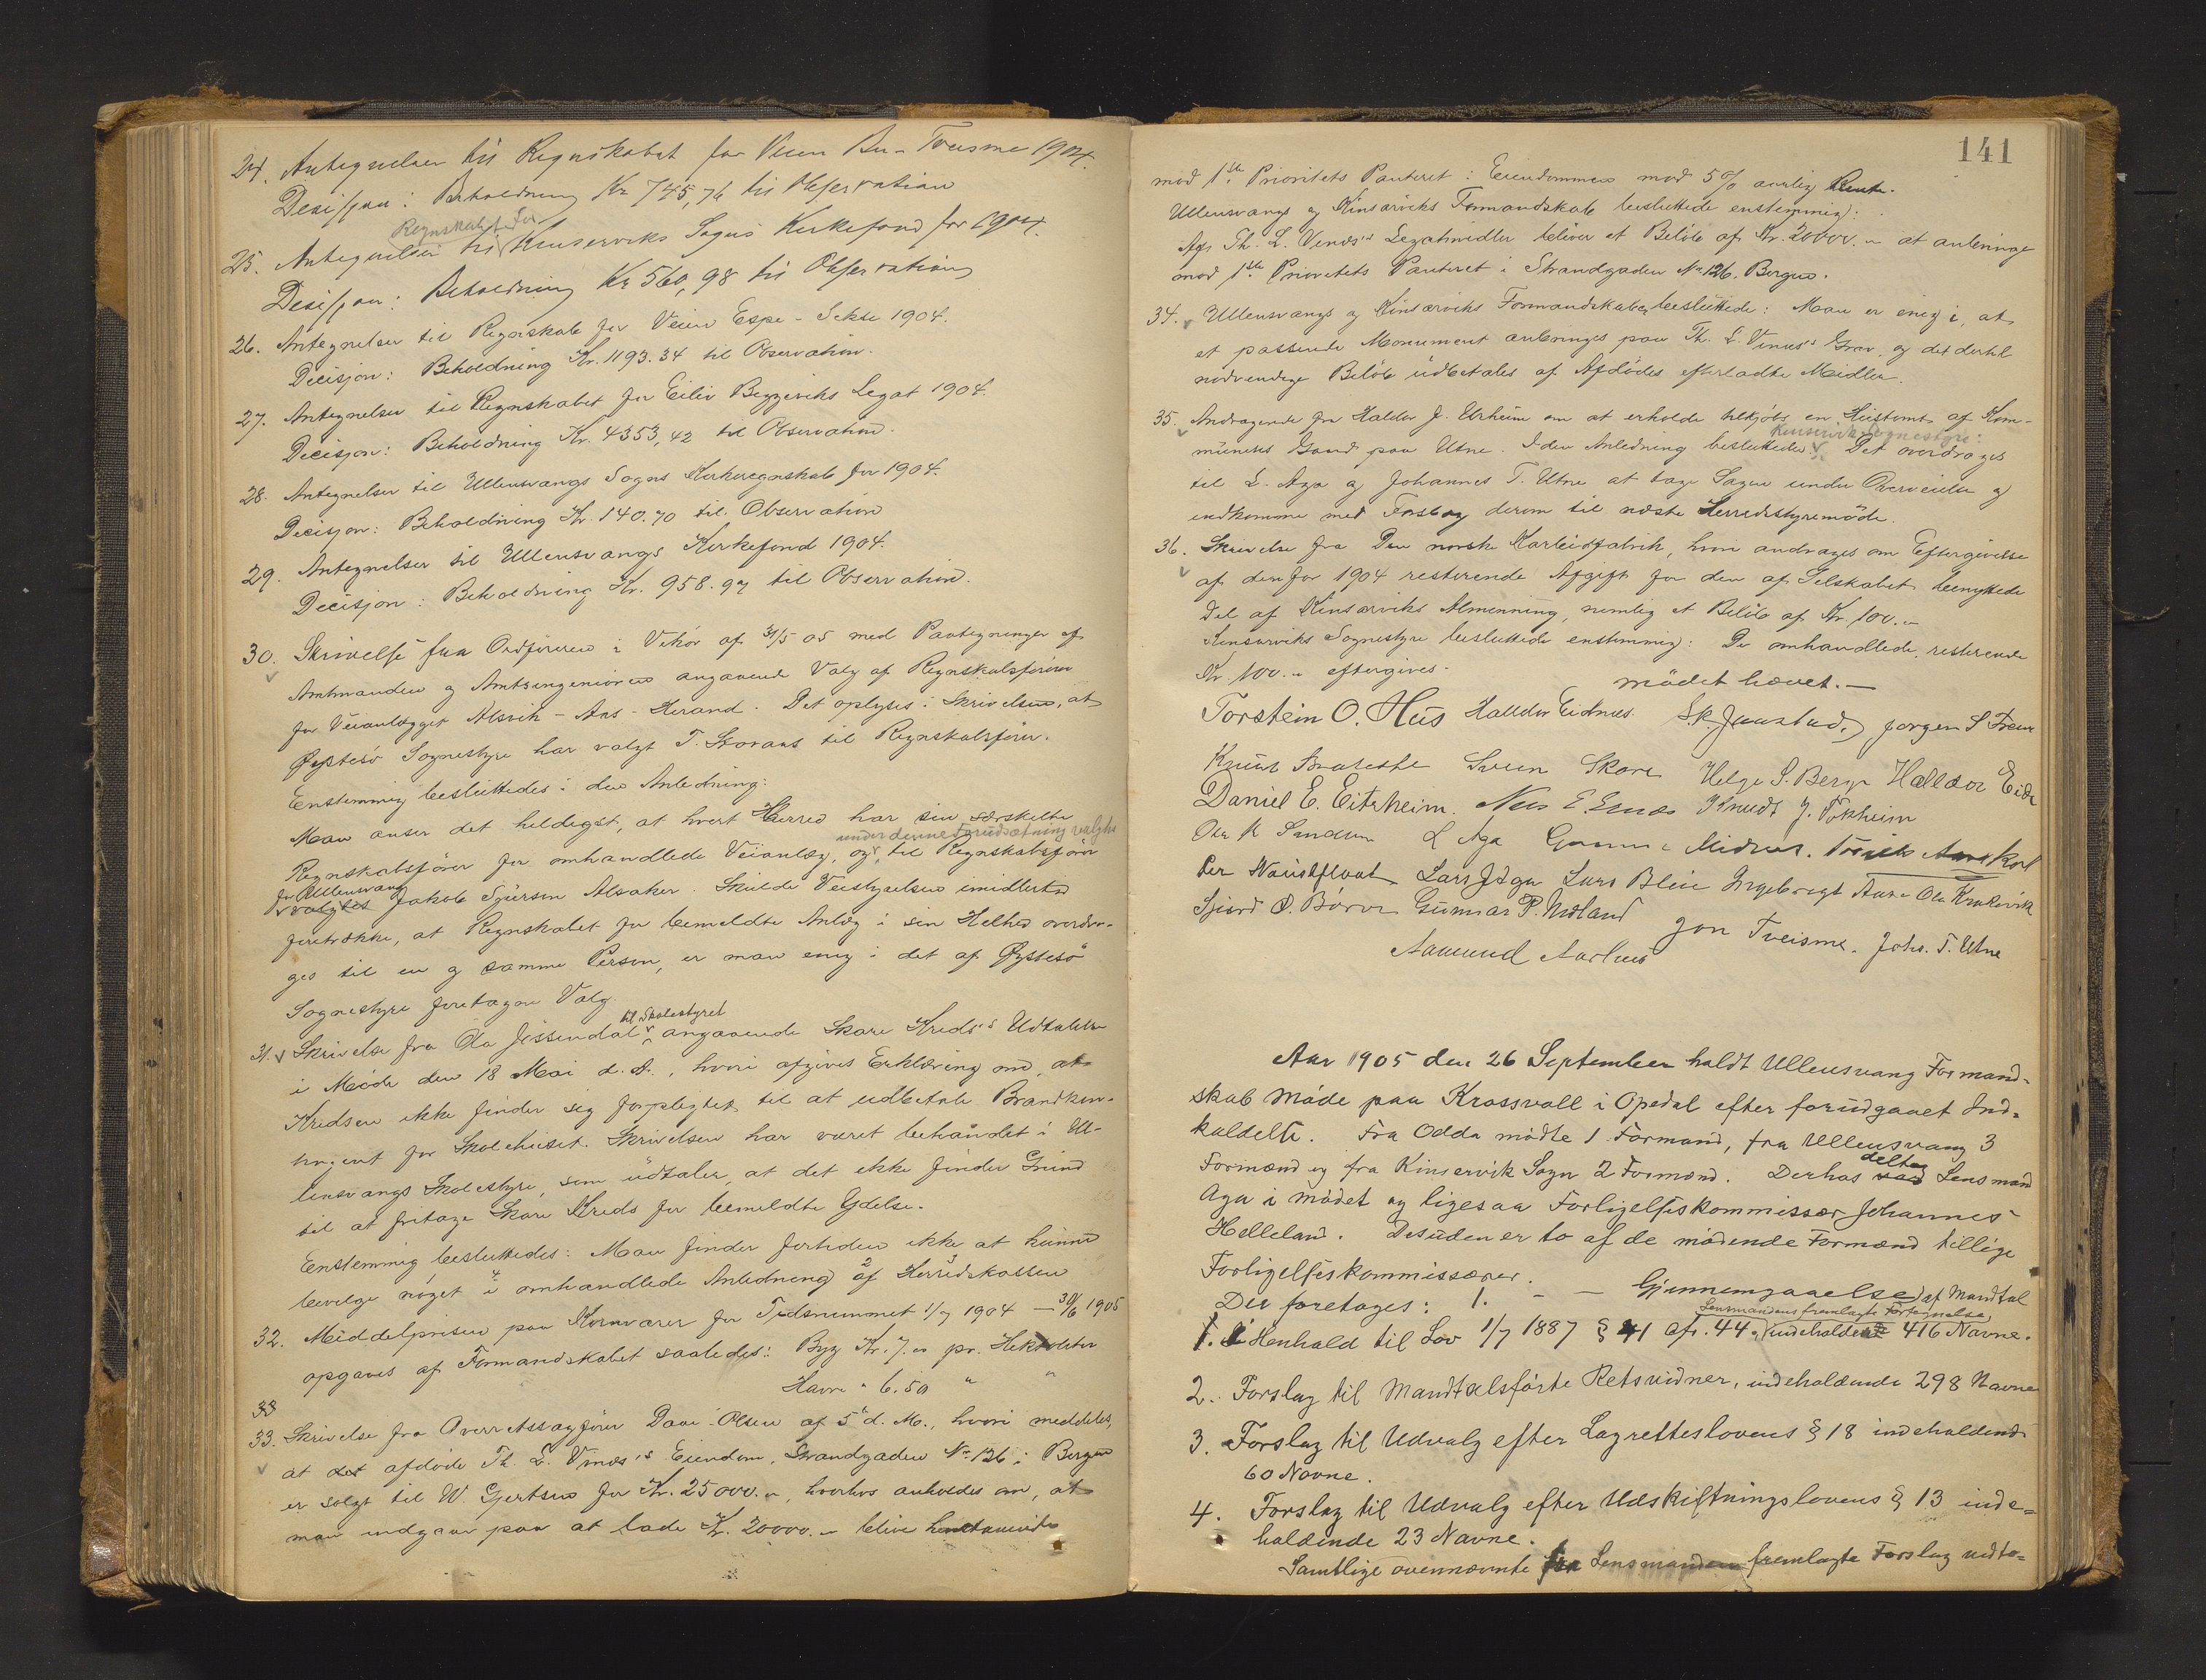 24. Antegnelser til Regnskabet for Veien Bu - Tveisme 1904.
Desisjon: Beholdning Kr 745,76 til Observation
Regnskabet for
25. Antegnelser til Kinserviks Sogns Kirkefond for 1904.
Desisjon: Beholdning Kr 560,98 til Observation
26. Antegnelser til Regnskab for Veien Espe - Sekse 1904.
Decisjon: Beholdning Kr. 1193.34 til Observation.
27. Antegnelser til Regnskabet for Eiliv Byggeviks Legat 1904.
Decisjon: Beholdning Kr. 4353,42 til Observation.
28. Antegnelser til Ullensvangs Sogns Kirkeregnskab for 1904.
Decisjon: Beholdning Kr. 140.70 til Observation
29. Antegnelser til Ullensvangs Kirkefond 1904.
Decisjon: Beholdning Kr. 958.97 til Observation.
30. Skrivelse fra Ordføreren i Vikør af 31/5 05 med Paategninger af
Amtmanden og Amtsingeniøren angaaende Valg af Regnskabsfører
for Veianlægget Alsvik - Aas - Herand. Det oplyses i Skrivelsen, at
Øystesø Sognestyre har valgt T. Skovaas til Regnskabsfører.
Enstemmig besluttedes i den Anledning:
Man anser det heldigst, at hvert Herred har sin særskilte
under denne Forudsætning valgtes
Regnskabsfører for omhandlede Veianlæg, og til Regnskabsfører
for Ullensvang
valgtes Jakob Sjursen Alsaker. Skulde Veistyrelsen imidlertid
foretrække, at Regnskabet for bemeldte Anlæg i sin Helhed overdra-
ges til en og samme Person, er man enig i det af Øystesø
Sognestyre foretagne Valg.
til Skolestyret
31. Skrivelse fra Ola Jøssendal angaaende Skare Kreds's Udtalelse
i Møde den 18 Mai d. A., hvori afgives Erklæring om, at
Kredsen ikke finder sig forpligtet til at udbetale Brandkon-
tingent for Skolehuset. Skrivelsen har været behandlet i Ul-
lensvangs Skolestyre, som udtaler, at det ikke finder Grund
til at fritage Skare Kreds for bemeldte Ydelse.
Enstemmig besluttedes: Man finder fortiden ikke at kunne
bevilge noget i omhandlede Anledning af Herredskassen
32. Middelprisen paa Kornvarer for Tidsrummet 1/7 1904 - 30/6 1905
opgaves af Formandskabet saaledes: Byg Kr. 7.00 pr. Hektoliter
Havre " 6.50 " "
33
33. Skrivelse fra Overretssagfører Daae-Olsen af 5te d. M., hvori meddeles,
at det afdøde Th. L. Vinæs's Eiendom, Strandgaden No 126 i Bergen
er solgt til W. Gjertsen for Kr. 25000.00, hvorhos anholdes om, at
man indgaar paa at lade Kr. 20000.00 blive henstaaende
141
mod 1ste Prioritets Panteret i Eiendommen mod 5% aarlig Rente.
Ullensvangs og Kinsarviks Formandskab besluttede enstemmig:
Af Th. L. Vinæs's Legatmidler bliver et Beløb af Kr. 20000.00 at anbringe
mod 1ste Prioritets Panteret i Strandgaden No 126, Bergen.
34. Ullensvangs og Kinsarviks Formandskaber besluttede: Man er enig i, at
et passende Monument anbringes paa Th. L. Vinæs's Grav, og det dertil
nødvendige Beløb udbetales af Afdødes efterladte Midler.
35. Andragende fra Haldor J. Utheim om at erholde tilkjøbt en Hustomt af Kom-
Kinservik Sognestyre:
munens Gaard paa Utne. I den Anledning besluttede Det overdrages
til L. Aga og Johannes T. Utne at tage Sagen under Overveielse og
indkomme med Forslag derom til næste Herredsstyremøde.
36. Skrivelse fra Den norske Karbidfabrik, hvori andrages om Eftergivelse
af den for 1904 resterende Afgift for den af Selskabet benyttede
Del af Kinsarviks Almenning, nemlig et Beløb af Kr. 100.00
Kinsarviks Sognestyre besluttede enstemmig: De omhandlede, resterende
Kr. 100.00 eftergives.
Mødet hævet.—
Torstein O. Hus Halldor Eidnes S.K. Jaastad, Jørgen S Freim
Knut Bratebø Svein Skare Helge S. Berge Halldor Eide
Daniel E. Eitrheim. Nils E. Knudt J. Tokheim
Ola K L Aga Gunnar Midnes.
Per Naustflaat Lars J Aga Lars Bleie Ingebrigt Aase Ola Krakevik
Sjurd O. Børve Gunnar P. Midland Jon Tveisme. Johs. T. Utne
Aamund Aarhus
Aar 1905 den 26 September holdt Ullensvang Formand-
skab Møde paa Krossvoll i Opedal efter forudgaaet Ind-
kaldelse. Fra Odda mødte 1 Formand, fra Ullensvang 3
Formænd og fra Kinservik Sogn 2 Formænd. Derhos deltog Lensmand
Aga i mødet og ligesaa Forligelseskommissær Johannes
Helleland. Desuden er to af de mødende Formænd tillige
Forligelseskommissærer.
Der foretoges: 1. - - Gjennemgaaelse af Mandtal
Lensmandens fremlagte Fortegnelse,
1. I Henhold til Lov 1/7 1887 § 41 cfr. 44. indeholdende 416 Navne.
2. Forslag til Mandtalsførte Retsvidner, indeholdende 298 Navne
3. Forslag til Udvalg efter Lagretteslovens § 18 indeholdende
60 Navne.
4. Forslag til Udvalg efter Udskiftningslovens § 13 inde-
holdende 23 Navne.
Samtlige ovennævnte fra Lensmanden fremlagte Forslag vedto-